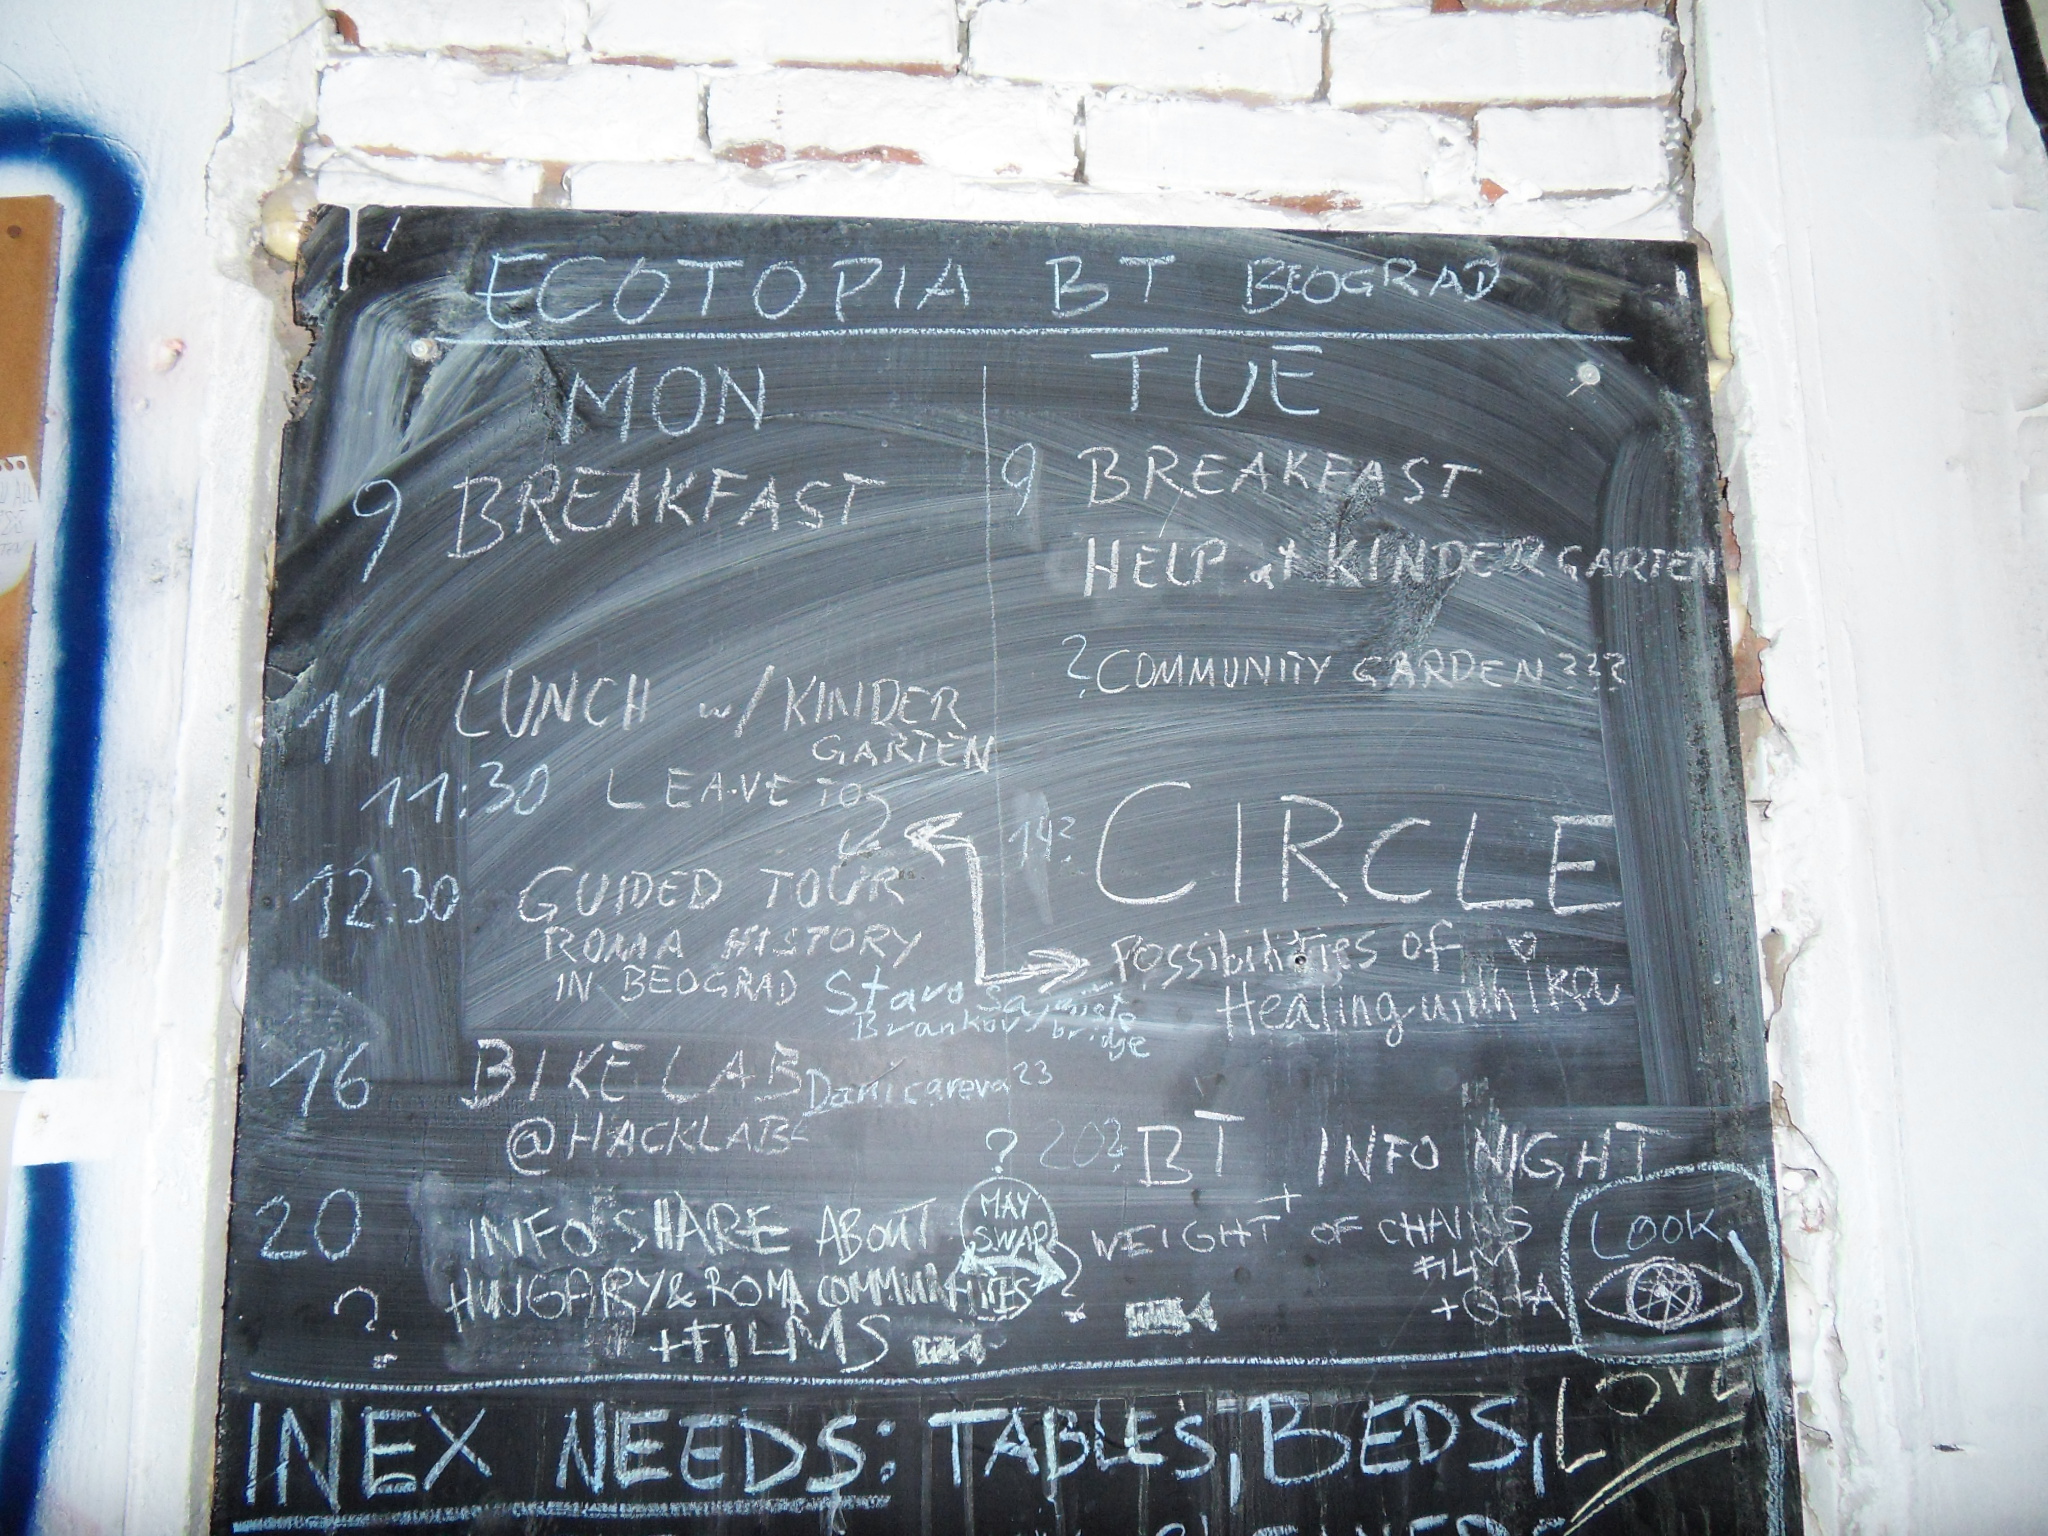 ECOTOPIA BT BEOGRAD
MON
9 BREAKFAST
11 LUNCH w/ KINDER
GARTEN
11:30 LEAVE TO
12:30 GUIDED TOUR
ROMA HISTORY
IN BEOGRAD Staro Sajmiste
Brankov bridge
16 BIKELAB Danicareva 23
@HACKLAB
20 INFO SHARE ABOUT
? HUNGARY & ROMA COMMUNITIES
+FILMS
?
MAY
SWAP
?
TUE
9 BREAKFAST
HELP at KINDERGARTEN
? COMMUNITY GARDEN ???
14? CIRCLE
Possibilities of
Healing with ika
20? BT INFO NIGHT
+
WEIGHT OF CHAINS
FILM
+Q+A
LOOK
INEX NEEDS: TABLES, BEDS, LOVE